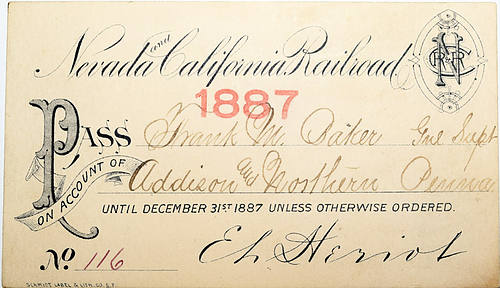 Nevada and California Railroad
1887
PASS Frank M. Baker Gnl Supt
ON ACCOUNT OF Addison and Northern Penna
UNTIL DECEMBER 31ST 1887 UNLESS OTHERWISE ORDERED.
No. 116 Eh Heriot
SCHMIDT LABEL & LITH. CO. S.F.